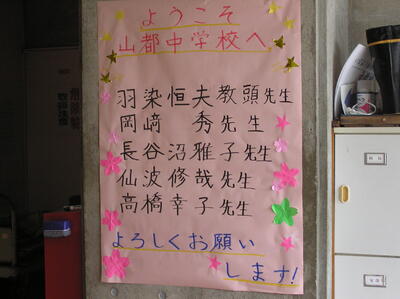 ようこそ
山都中学校へ
羽染恒夫教頭先生
岡﨑 秀先生
長谷沼雅子先生
仙波修哉先生
高橋幸子先生
よろしくお願い
します!